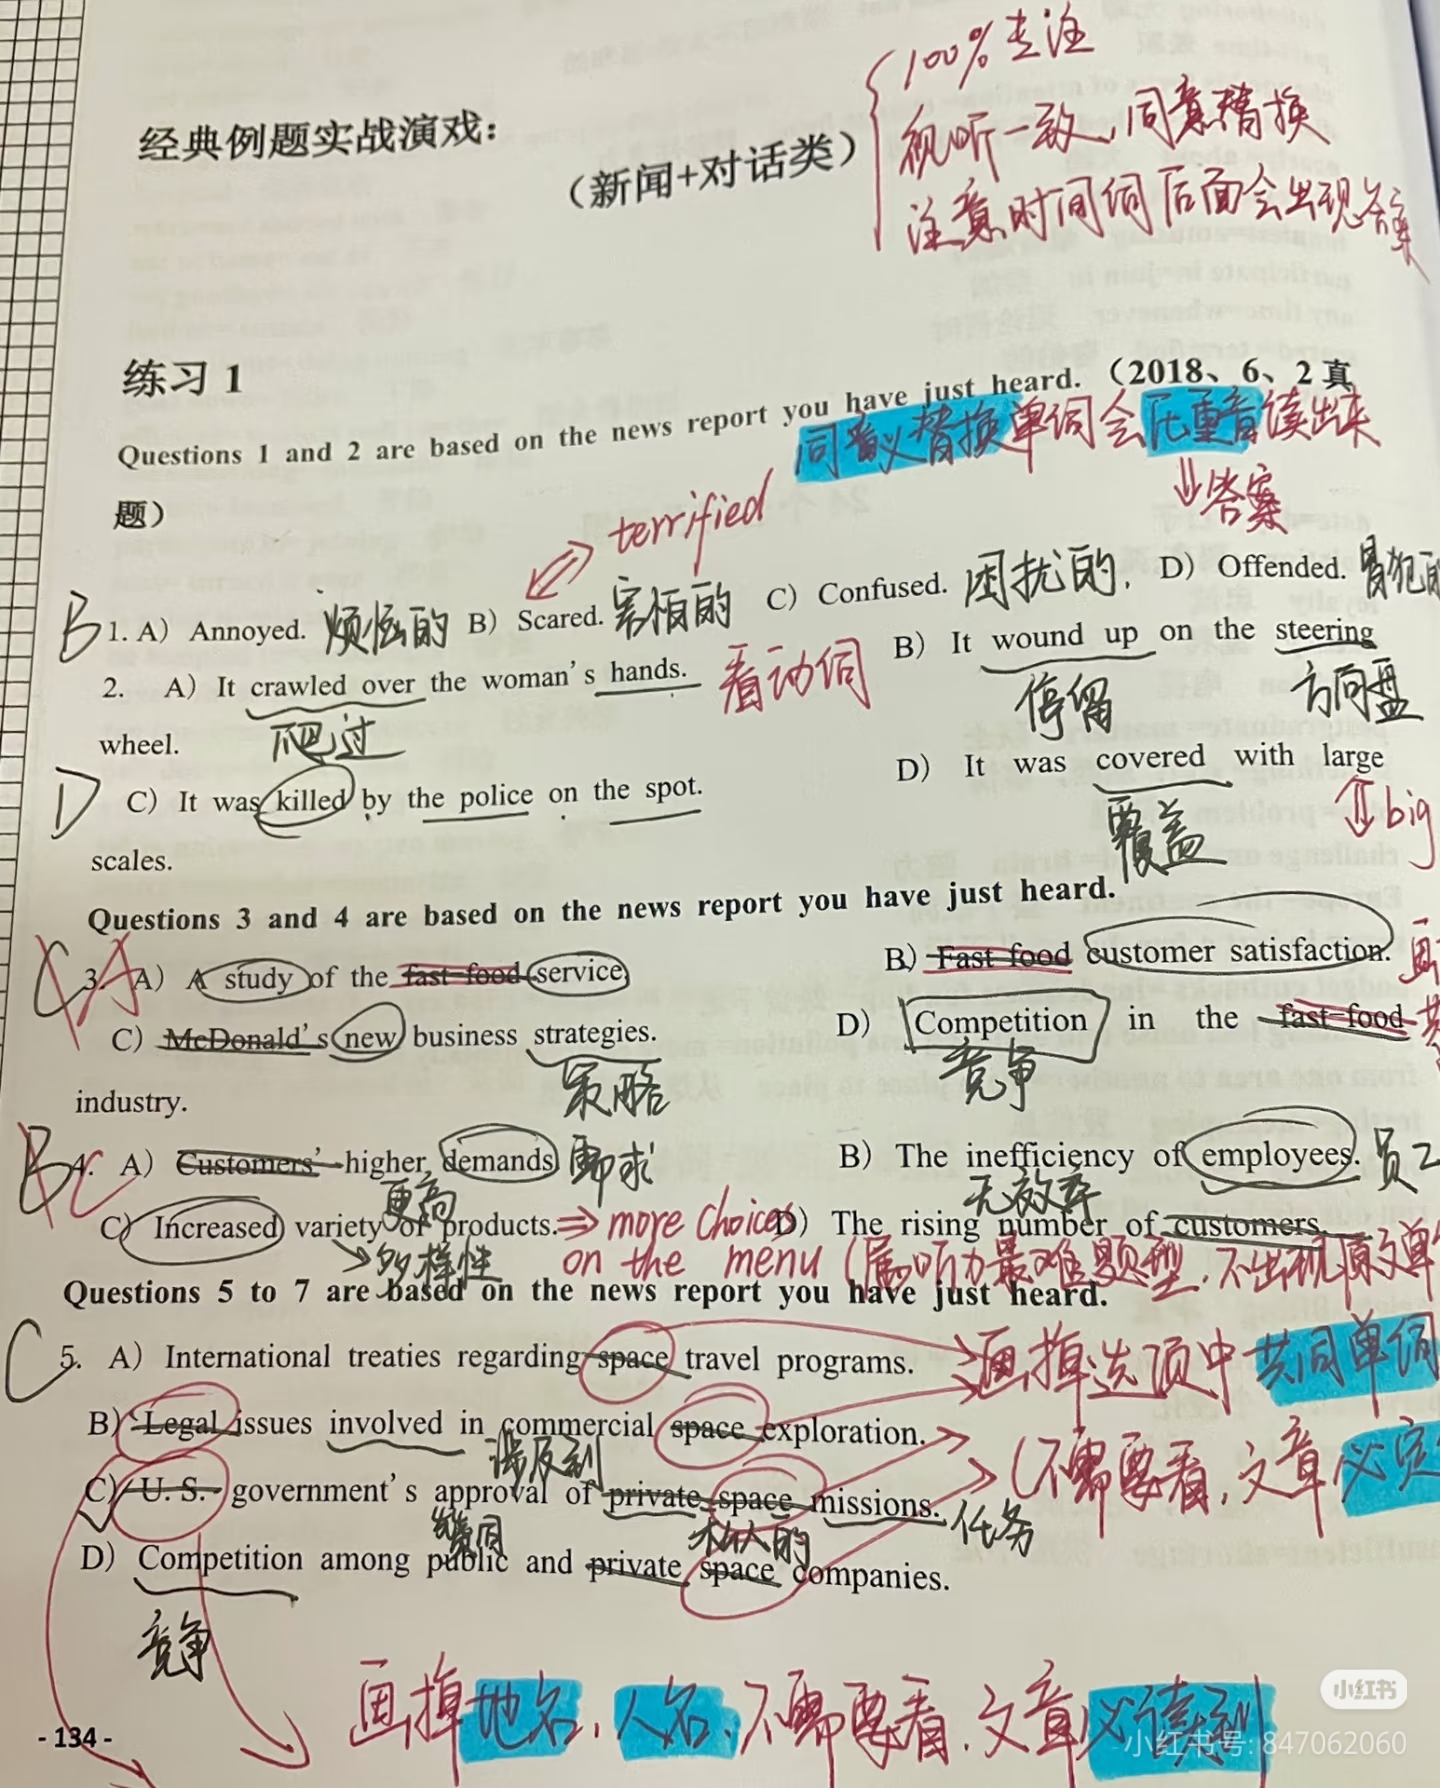 100%专注
视听一致，同意替换
注意时间词后面会出现答案
经典例题实战演戏：
（新闻+对话类）
练习 1
Questions 1 and 2 are based on the news report you have just heard.（2018、6、2 真
同义替换单词会压重音读出来
题）
⇓答案
terrified
B 1. A） Annoyed. 烦恼的 B） Scared. 害怕的 C） Confused. 困扰的. D） Offended. 冒犯的
2. A） It crawled over the woman's hands. 看动词 B） It wound up on the steering
爬过 停留 方向盘
wheel.
D C） It was killed by the police on the spot. D） It was covered with large
覆盖 ⇕big
scales.
Questions 3 and 4 are based on the news report you have just heard.
C A 3. A） A study of the fast-food service. B） Fast food customer satisfaction.
C） McDonald's new business strategies. D） Competition in the fast-food
策略 竞争
industry.
B C 4. A） Customers' higher demands. 需求 B） The inefficiency of employees. 员工
更高 无效率
C） Increased variety of products. ⇒ more choices D） The rising number of customers.
多样性 on the menu (属听力最难题型，不出现原文单
Questions 5 to 7 are based on the news report you have just heard.
C 5. A） International treaties regarding space travel programs. 画掉选项中共同单词
B） Legal issues involved in commercial space exploration.
涉及到 (不需要看，文章必定
C） U. S. government's approval of private space missions. 任务
赞同 私人的
D） Competition among public and private space companies.
竞争
画掉地名、人名、不需要看，文章必读到
- 134 -
小红书
小红书号: 847062060